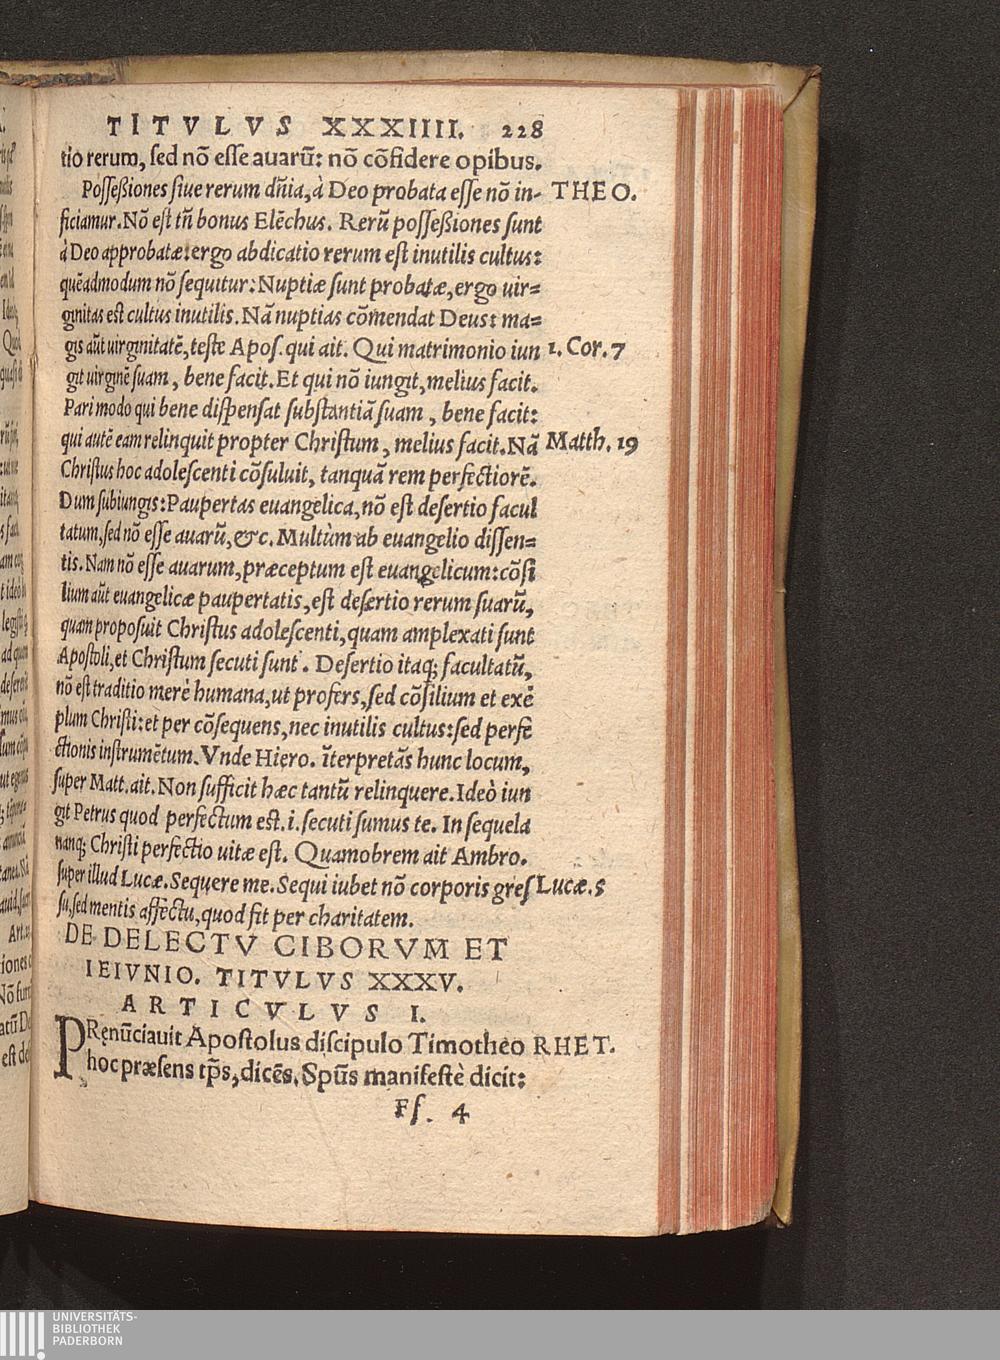 TITVLVS XXXIIII. 228
tio rerum, sed nō esse auarū: nō cōfidere opibus.
Possessiones siue rerum dn̄ia, à Deo probata esse nō in- THEO.
ficiamur. Nō est tn̄ bonus Elēchus. Rerū possessiones sunt
à Deo approbatæ: ergo abdicatio rerum est inutilis cultus:
quēadmodum nō sequitur: Nuptiæ sunt probatæ, ergo uir=
ginitas est cultus inutilis. Nā nuptias cōmendat Deus: ma=
gis aūt uirginitatē, teste Apos. qui ait. Qui matrimonio iun 1. Cor. 7
git uirginē suam, bene facit. Et qui nō iungit, melius facit.
Pari modo qui bene dispensat substantiā suam, bene facit:
qui autē eam relinquit propter Christum, melius facit. Nā Matth. 19
Christus hoc adolescenti cōsuluit, tanquā rem perfectiorē.
Dum subiungis: Paupertas euangelica, nō est desertio facul
tatum, sed nō esse auarū, &c. Multùm ab euangelio dissen=
tis. Nam nō esse auarum, præceptum est euangelicum: cōsi
lium aūt euangelicæ paupertatis, est desertio rerum suarū,
quam proposuit Christus adolescenti, quam amplexati sunt
Apostoli, et Christum secuti sunt. Desertio itaq; facultatū,
nō est traditio merè humana, ut profers, sed cōsilium et exē
plum Christi: et per cōsequens, nec inutilis cultus: sed perfe
ctionis instrumētum. Vnde Hiero. īterpretās hunc locum,
super Matt. ait. Non sufficit hæc tantū relinquere. Ideò iun
git Petrus quod perfectum est. i. secuti sumus te. In sequela
nanq; Christi perfectio uitæ est. Quamobrem ait Ambro.
super illud Lucæ. Sequere me. Sequi iubet nō corporis gres Lucæ. 5
su, sed mentis affectu, quod fit per charitatem.
DE DELECTV CIBORVM ET
IEIVNIO. TITVLVS XXXV.
ARTICVLVS I.
PRenūciauit Apostolus discipulo Timotheo RHET.
hoc præsens tp̄s, dicēs. Spūs manifestè dicit:
Fs. 4
UNIVERSITÄTS-
BIBLIOTHEK
PADERBORN